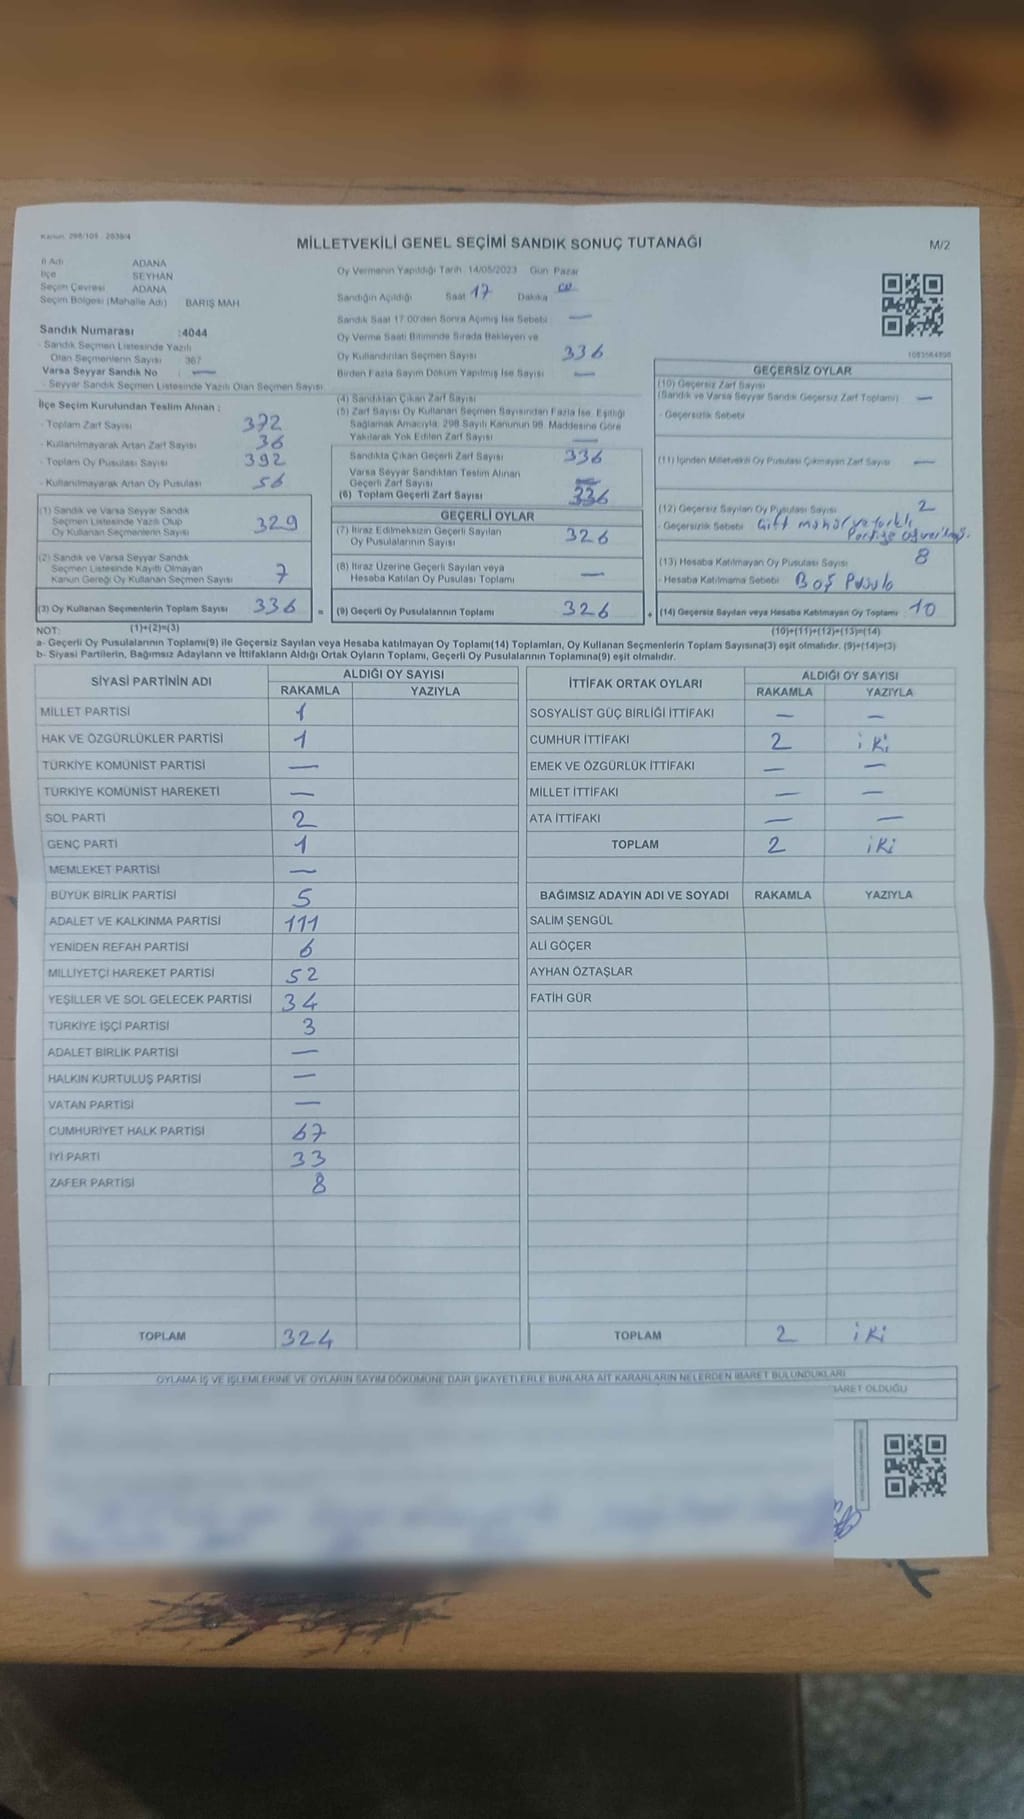 Kanun: 298/105 - 2839/4
MİLLETVEKİLİ GENEL SEÇİMİ SANDIK SONUÇ TUTANAĞI
M/2
İl Adı ADANA
İlçe SEYHAN
Seçim Çevresi ADANA
Seçim Bölgesi (Mahalle Adı) BARIŞ MAH
Sandık Numarası :4044
- Sandık Seçmen Listesinde Yazılı
Olan Seçmenlerin Sayısı 367
Varsa Seyyar Sandık No : —
- Seyyar Sandık Seçmen Listesinde Yazılı Olan Seçmen Sayısı
İlçe Seçim Kurulundan Teslim Alınan :
- Toplam Zarf Sayısı 372
- Kullanılmayarak Artan Zarf Sayısı 36
- Toplam Oy Pusulası Sayısı 392
- Kullanılmayarak Artan Oy Pusulası 56
(1) Sandık ve Varsa Seyyar Sandık
Seçmen Listesinde Yazılı Olup
Oy Kullanan Seçmenlerin Sayısı 329
(2) Sandık ve Varsa Seyyar Sandık
Seçmen Listesinde Kayıtlı Olmayan
Kanun Gereği Oy Kullanan Seçmen Sayısı 7
(3) Oy Kullanan Seçmenlerin Toplam Sayısı 336 =
(1)+(2)=(3)
Oy Vermenin Yapıldığı Tarih: 14/05/2023 Gün: Pazar
Sandığın Açıldığı Saat 17 Dakika 00
Sandık Saat 17:00'den Sonra Açımış İse Sebebi —
Oy Verme Saati Bitiminde Sırada Bekleyen ve
Oy Kullandırılan Seçmen Sayısı 336
Birden Fazla Sayım Döküm Yapılmış İse Sayısı —
(4) Sandıktan Çıkan Zarf Sayısı
(5) Zarf Sayısı Oy Kullanan Seçmen Sayısından Fazla İse, Eşitliği
Sağlamak Amacıyla, 298 Sayılı Kanunun 98. Maddesine Göre
Yakılarak Yok Edilen Zarf Sayısı —
Sandıkta Çıkan Geçerli Zarf Sayısı 336
Varsa Seyyar Sandıktan Teslim Alınan
Geçerli Zarf Sayısı
(6) Toplam Geçerli Zarf Sayısı 336
GEÇERLİ OYLAR
(7) İtiraz Edilmeksizin Geçerli Sayılan
Oy Pusulalarının Sayısı 326
(8) İtiraz Üzerine Geçerli Sayılan veya
Hesaba Katılan Oy Pusulası Toplamı —
(9) Geçerli Oy Pusulalarının Toplamı 326 +
GEÇERSİZ OYLAR
(10) Geçersiz Zarf Sayısı
(Sandık ve Varsa Seyyar Sandık Geçersiz Zarf Toplamı) —
- Geçersizlik Sebebi
(11) İçinden Milletvekili Oy Pusulası Çıkmayan Zarf Sayısı —
(12) Geçersiz Sayılan Oy Pusulası Sayısı 2
- Geçersizlik Sebebi Çift mühür ve farklı
Partiye
(13) Hesaba Katılmayan Oy Pusulası Sayısı 8
- Hesaba Katılmama Sebebi Boş Pusula
(14) Geçersiz Sayılan veya Hesaba Katılmayan Oy Toplamı 10
(10)+(11)+(12)+(13)=(14)
NOT:
a- Geçerli Oy Pusulalarının Toplamı(9) ile Geçersiz Sayılan veya Hesaba katılmayan Oy Toplamı(14) Toplamları, Oy Kullanan Seçmenlerin Toplam Sayısına(3) eşit olmalıdır. (9)+(14)=(3)
b- Siyasi Partilerin, Bağımsız Adayların ve İttifakların Aldığı Ortak Oyların Toplamı, Geçerli Oy Pusulalarının Toplamına(9) eşit olmalıdır.
SİYASİ PARTİNİN ADI
ALDIĞI OY SAYISI
RAKAMLA YAZIYLA
MİLLET PARTİSİ 1
HAK VE ÖZGÜRLÜKLER PARTİSİ 1
TÜRKİYE KOMÜNİST PARTİSİ —
TÜRKİYE KOMÜNİST HAREKETİ —
SOL PARTİ 2
GENÇ PARTİ 1
MEMLEKET PARTİSİ —
BÜYÜK BİRLİK PARTİSİ 5
ADALET VE KALKINMA PARTİSİ 111
YENİDEN REFAH PARTİSİ 6
MİLLİYETÇİ HAREKET PARTİSİ 52
YEŞİLLER VE SOL GELECEK PARTİSİ 34
TÜRKİYE İŞÇİ PARTİSİ 3
ADALET BİRLİK PARTİSİ —
HALKIN KURTULUŞ PARTİSİ —
VATAN PARTİSİ —
CUMHURİYET HALK PARTİSİ 67
İYİ PARTİ 33
ZAFER PARTİSİ 8
TOPLAM 324
İTTİFAK ORTAK OYLARI
ALDIĞI OY SAYISI
RAKAMLA YAZIYLA
SOSYALİST GÜÇ BİRLİĞİ İTTİFAKI — —
CUMHUR İTTİFAKI 2 iki
EMEK VE ÖZGÜRLÜK İTTİFAKI — —
MİLLET İTTİFAKI — —
ATA İTTİFAKI — —
TOPLAM 2 iki
BAĞIMSIZ ADAYIN ADI VE SOYADI RAKAMLA YAZIYLA
SALİM ŞENGÜL
ALİ GÖÇER
AYHAN ÖZTAŞLAR
FATİH GÜR
TOPLAM 2 iki
OYLAMA İŞ VE İŞLEMLERİNE VE OYLARIN SAYIM DÖKÜMÜNE DAİR ŞİKAYETLERLE BUNLARA AİT KARARLARIN NELERDEN İBARET BULUNDUKLARI
İBARET OLDUĞU